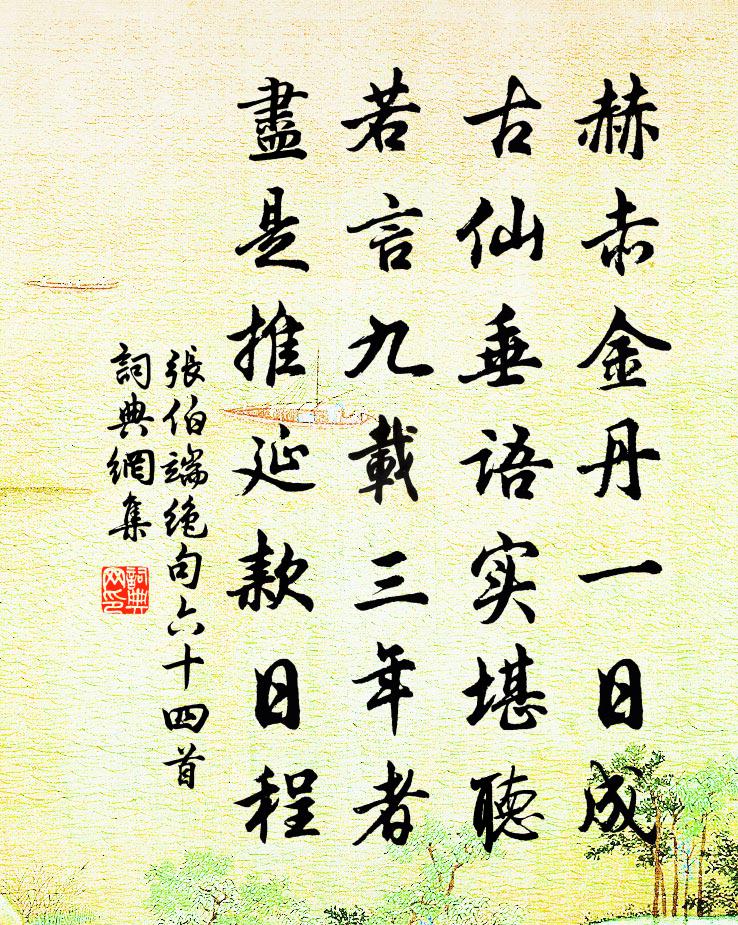 赫赤金丹一日成
古仙垂语实堪聴
若言九載三年者
盡是推延款日程
張伯端绝句六十四首
詞典網集
詞典
网印